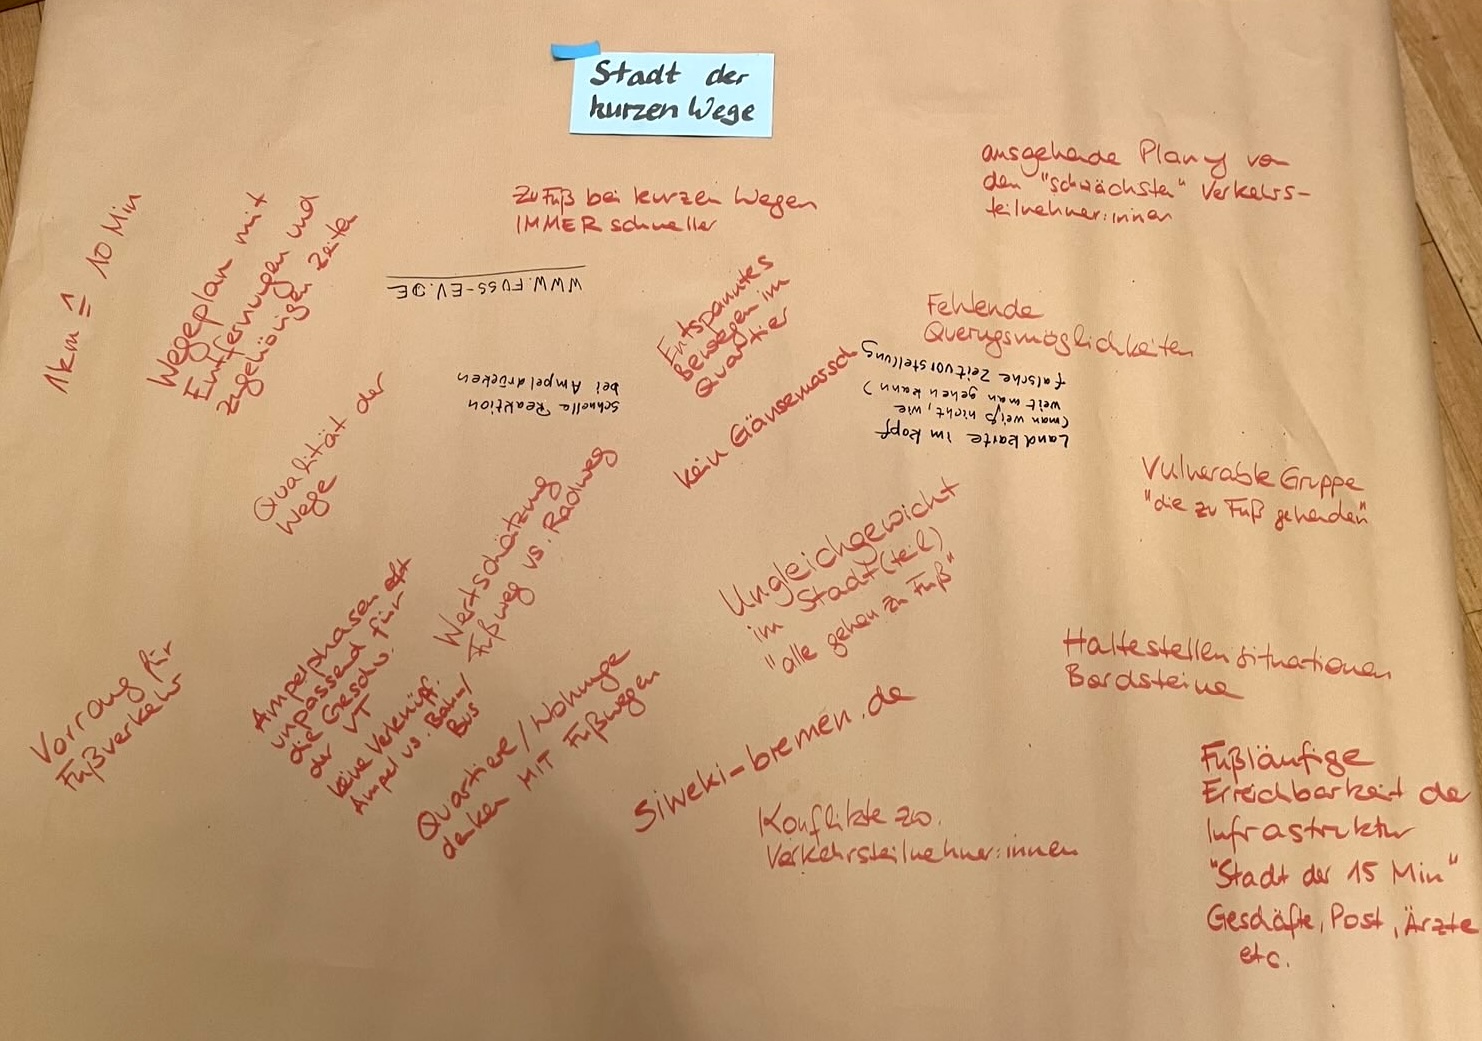 Stadt der
kurzen Wege
1km ≙ 10 Min
Wegeplan mit
Entfernungen und
zugehörigen Zeiten
Zu Fuß bei kurzen Wegen
IMMER schneller
ausgehende Planug von
den "schwächsten" Verkehrs-
teilnehmer:innen
WWW.FUSS-EV.DE
schnelle Reaktion
bei Ampeldrücken
Entspanntes
bewegen im
Quartier
Fehlende
Querugsmöglichkeiten
Landkarte im Kopf
(man weiß nicht, wie
weit man gehen kann)
falsche Zeitvorstellung
kein Gänsemarsch
Qualität der
Wege
Vulnerable Gruppe
"die zu Fuß gehenden"
Wertschätzung
Fußweg vs. Radweg
Ungleichgewicht
im Stadt(teil)
"alle gehen zu Fuß"
Vorrang für
Fußverkehr
Ampelphasen oft
unpassend für
die Geschw.
der VT
keine Verknüpf.
Ampel vs. Bahn/
Bus
Quartiere/Wohnunge
denken MIT Fußwegen
Siweki-bremen.de
Haltestellensituationen
Bordsteine
Konflikte zw.
Verkehrsteilnehmer:innen
Fußläufige
Erreichbarkeit der
Infrastruktur
"Stadt der 15 Min"
Geschäfte, Post, Ärzte
etc.